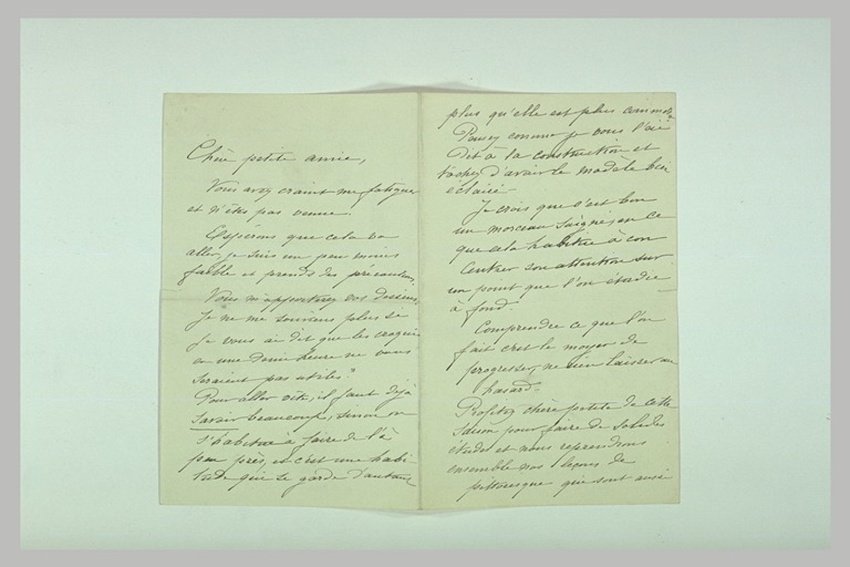 Chère petite amie,
Vous avez craint me fatiguer
et n'êtes pas venue.
Espérons que cela va
aller, je suis un peu moins
faible et prends des précautions.
Vous m'apporterez vos dessins,
Je ne me souviens plus si
je vous ai dit que les croquis
en une demi heure ne vous
seraient pas utiles.
Pour aller vite, il faut déjà
savoir beaucoup, sinon on
s'habitue à faire de l'à
peu près, et c'est une habi-
tude qui se garde d'autant
plus qu'elle est plus commode
Pensez comme je vous l'ai
dit à la construction et
tâchez d'avoir le modèle bien
éclairé.
Je crois que c'est bon
un morceau soigné, en ce
que cela habitue à con
centrer son attention sur
un point que l'on étudie
à fond.
Comprendre ce que l'on
fait c'est le moyen de
progresser, ne rien laisser au
hasard.
Profitez chère petite de cette
saison pour faire de solides
études et nous reprendrons
ensemble nos leçons de
pittoresque qui sont aussi